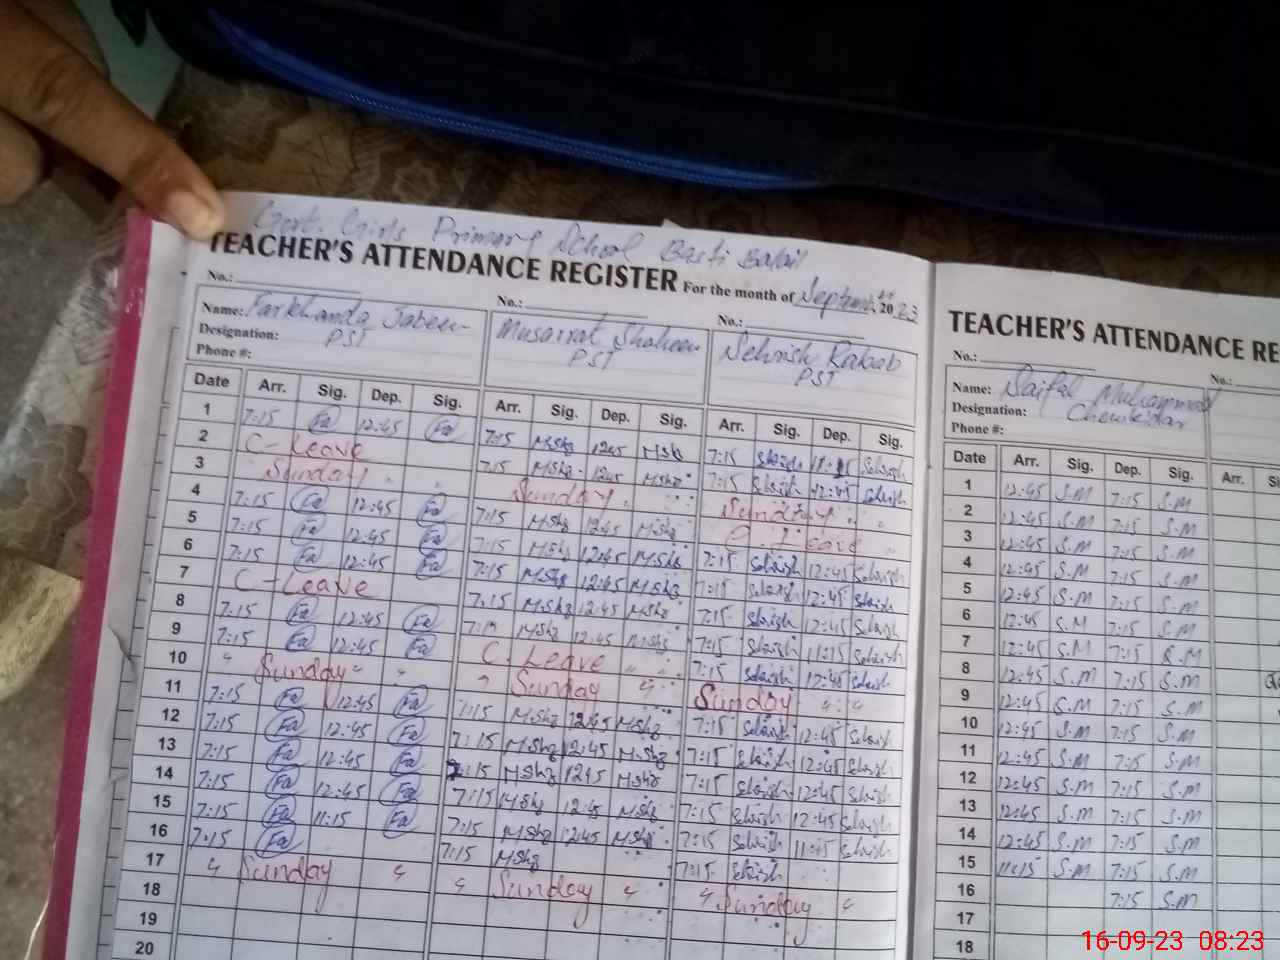 Govt. Girls Primary School Basti
TEACHER'S ATTENDANCE REGISTER For the month of September 2023
No.: No.: No.:
Name: Farkhanda Jabeen Musarrat Shaheen Sehrish Rabab
Designation: PST PST PST
Phone #:
Date Arr. Sig. Dep. Sig. Arr. Sig. Dep. Sig. Arr. Sig. Dep. Sig.
1 7:15 Fa 12:45 Fa 7:15 M.Shz 1245 MShz 7:15 Sehrish Sehrish
2 C-Leave 7:15 M.Shz 1245 M.Shz 7:15 Sehrish 12:45 Sehrish
3 Sunday Sunday Sunday
4 7:15 Fa 12:45 Fa 7:15 M.Shz 1245 M.Shz C. Leave
5 7:15 Fa 12:45 Fa 7:15 M.Shz 12:45 M.Shz 7:15 Sehrish 12:45 Sehrish
6 7:15 Fa 12:45 Fa 7:15 M.Shz 12:45 M.Shz 7:15 Sehrish 12:45 Sehrish
7 C-Leave 7:15 M.Shz 12:45 M.Shz 7:15 Sehrish 12:45 Sehrish
8 7:15 Fa 12:45 Fa 7:15 M.Shz 12:45 M.Shz 7:15 Sehrish 11:15 Sehrish
9 7:15 Fa 12:45 Fa C. Leave 7:15 Sehrish 12:45 Sehrish
10 " Sunday " " " Sunday " Sunday " "
11 7:15 Fa 12:45 Fa 7:15 M.Shz 12:45 M.Shz 7:15 Sehrish 12:45 Sehrish
12 7:15 Fa 12:45 Fa 7:15 M.Shz 12:45 M.Shz 7:15 Sehrish 12:45 Sehrish
13 7:15 Fa 12:45 Fa 7:15 M.Shz 1245 M.Shz 7:15 Sehrish 12:45 Sehrish
14 7:15 Fa 12:45 Fa 7:15 M.Shz 12:45 M.Shz 7:15 Sehrish 12:45 Sehrish
15 7:15 Fa 11:15 Fa 7:15 M.Shz 12:45 M.Shz 7:15 Sehrish 11:15 Sehrish
16 7:15 Fa 7:15 M.Shz 7:15 Sehrish
17 " Sunday " " Sunday " " Sunday "
18
19
20
TEACHER'S ATTENDANCE RE
No.: No.:
Name: Saif Muhammad
Designation: Chowkidar
Phone #:
Date Arr. Sig. Dep. Sig. Arr.
1 12:45 S.M 7:15 S.M
2 12:45 S.M 7:15 S.M
3 12:45 S.M 7:15 S.M
4 12:45 S.M 7:15 S.M
5 12:45 S.M 7:15 S.M
6 12:45 S.M 7:15 S.M
7 12:45 S.M 7:15 S.M
8 12:45 S.M 7:15 S.M
9 12:45 S.M 7:15 S.M
10 12:45 S.M 7:15 S.M
11 12:45 S.M 7:15 S.M
12 12:45 S.M 7:15 S.M
13 12:45 S.M 7:15 S.M
14 12:45 S.M 7:15 S.M
15 11:15 S.M 7:15 S.M
16 7:15 S.M
17
18
16-09-23 08:23